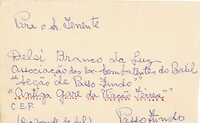 Para o A Tenente
Delsi Branco da Luz
Associação dos Ex-combatentes do Brasil
"Seção de Passo Fundo"
"Antiga Gare da Viação Férrea"
C.E.P.
Passo Fundo